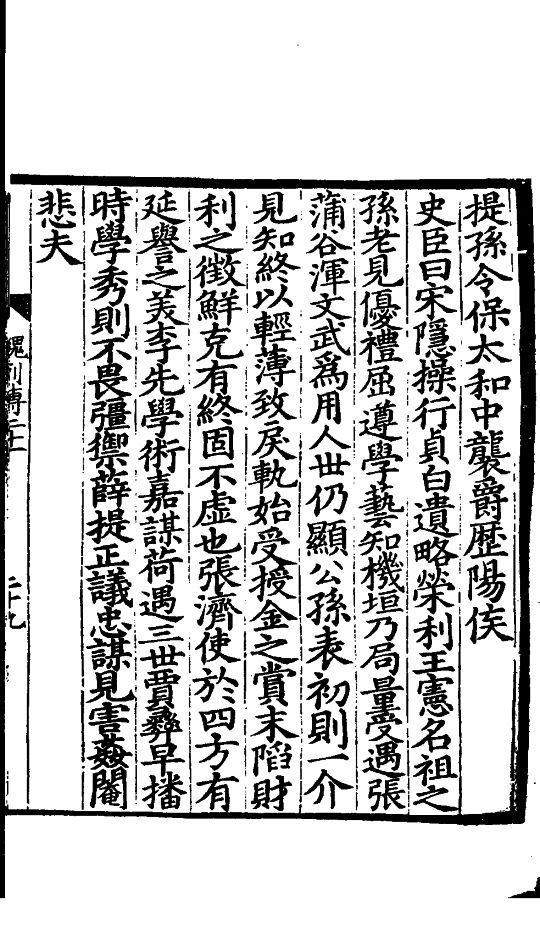 提孫令保太和中襲爵歷陽侯
史臣曰宋隱操行貞白遺略榮利王憲名祖之
孫老見優禮屈遵學藝知機垣乃局量受遇張
蒲谷渾文武爲用人世仍顯公孫表初則一介
見知終以輕薄致戾軌始受授金之賞末陷財
利之徵鮮克有終固不虛也張濟使於四方有
延譽之美李先學術嘉謀荷遇三世賈彝早播
時學秀則不畏彊禦薛提正議忠謀見害姦閹
悲夫
魏列傳二十一
二十九